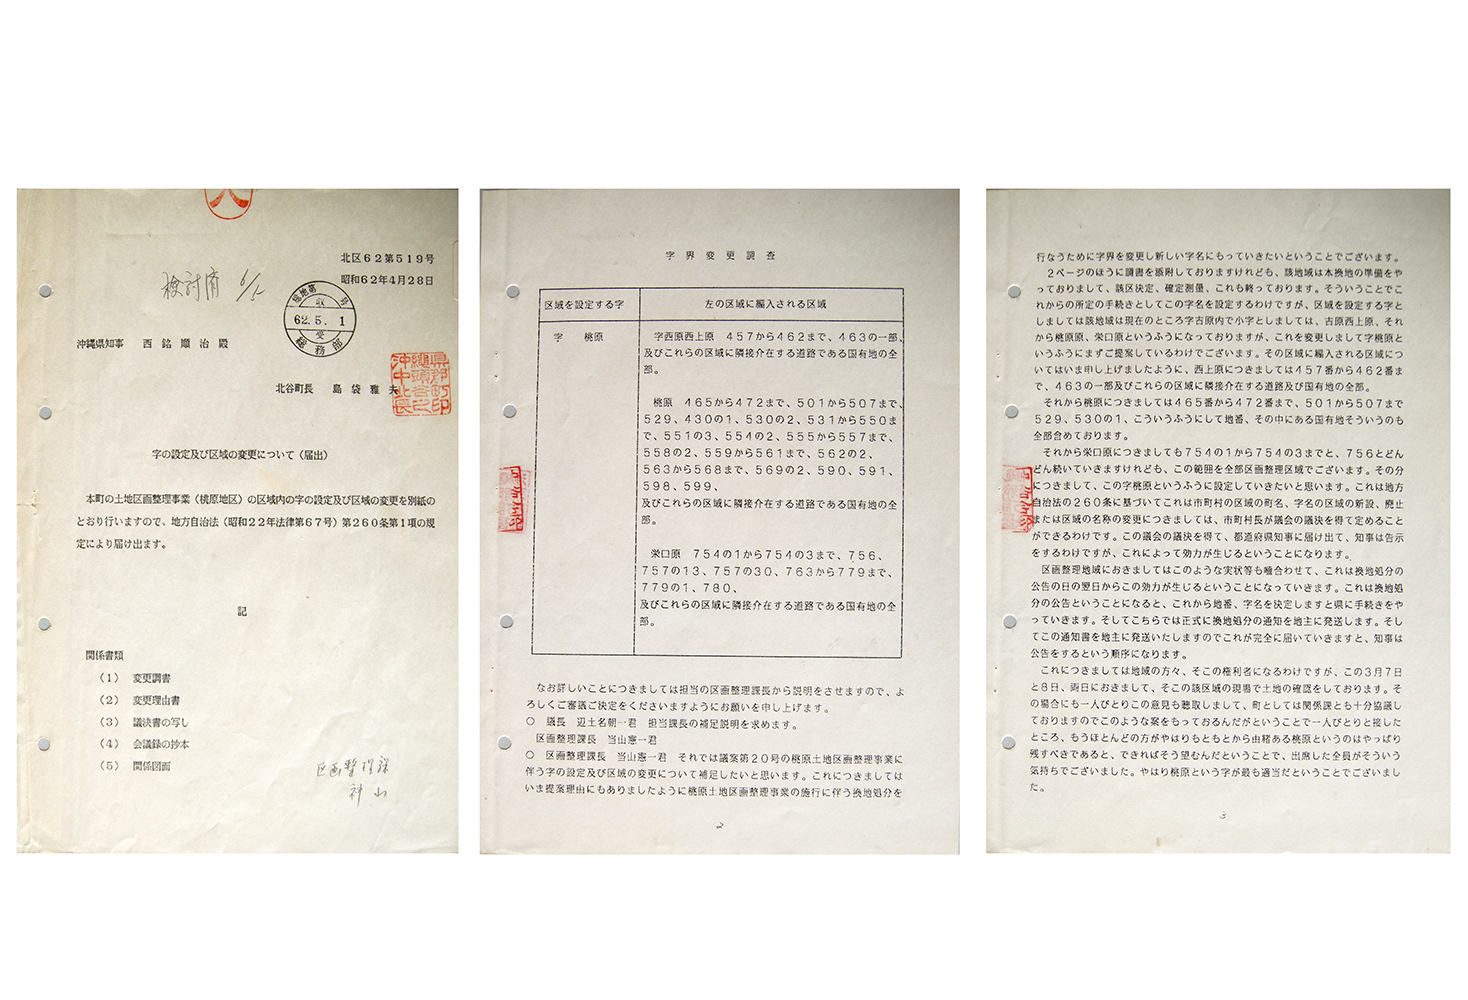 北区62第519号
昭和62年4月28日
検討済 6/5
総地第 号
収
62.5.1
受
総務部
沖縄県知事 西銘順治殿
北谷町長 島袋雅夫
字の設定及び区域の変更について(届出)
本町の土地区画整理事業(桃原地区)の区域内の字の設定及び区域の変更を別紙の
とおり行いますので、地方自治法(昭和22年法律第67号)第260条第1項の規
定により届け出ます。
記
関係書類
(1) 変更調書
(2) 変更理由書
(3) 議決書の写し
(4) 会議録の抄本
(5) 関係図面
区画整理課
神山
字界変更調査
区域を設定する字 左の区域に編入される区域
字 桃原 字西原西上原 457から462まで、463の一部、
及びこれらの区域に隣接介在する道路である国有地の全
部。
桃原 465から472まで、501から507まで、
529、430の1、530の2、531から550ま
で、551の3、554の2、555から557まで、
558の2、559から561まで、562の2、
563から568まで、569の2、590、591、
598、599、
及びこれらの区域に隣接介在する道路である国有地の全
部。
栄口原 754の1から754の3まで、756、
757の13、757の30、763から779まで、
779の1、780、
及びこれらの区域に隣接介在する道路である国有地の全
部。
なお詳しいことにつきましては担当の区画整理課長から説明をさせますので、よ
ろしくご審議ご決定をくださいますようにお願いを申し上げます。
○ 議長 辺土名朝一君 担当課長の補足説明を求めます。
区画整理課長 当山憲一君
○ 区画整理課長 当山憲一君 それでは議案第20号の桃原土地区画整理事業に
伴う字の設定及び区域の変更について補足したいと思います。これにつきましては
いま提案理由にもありましたように桃原土地区画整理事業の施行に伴う換地処分を
2
行なうために字界を変更し新しい字名にもっていきたいということでございます。
2ページのほうに調書を添附しておりますけれども、該地域は本換地の準備をや
っておりまして、該区決定、確定測量、これも終っております。そういうことでこ
れからの所定の手続きとしてこの字名を設定するわけですが、区域を設定する字と
しましては該地域は現在のところ字吉原内で小字としましては、吉原西上原、それ
から桃原原、栄口原というふうになっておりますが、これを変更しまして字桃原と
いうふうにまずご提案しているわけでございます。その区域に編入される区域につ
いてはいま申し上げましたように、西上原につきましては457番から462番ま
で、463の一部及びこれらの区域に隣接介在する道路及び国有地の全部。
それから桃原につきましては465番から472番まで、501から507まで
529、530の1、こういうふうにして地番、その中にある国有地そういうのも
全部含めております。
それから栄口原につきましても754の1から754の3までと、756とどん
どん続いていきますけれども、この範囲を全部区画整理区域でございます。その分
につきまして、この字桃原というふうに設定していきたいと思います。これは地方
自治法の260条に基づいてこれは市町村の区域の町名、字名の区域の新設、廃止
または区域の名称の変更につきましては、市町村長が議会の議決を得て定めること
ができるわけです。この議会の議決を得て、都道府県知事に届け出て、知事は告示
をするわけですが、これによって効力が生じるということになります。
区画整理地域におきましてはこのような実状等も嚙合わせて、これは換地処分の
公告の日の翌日からこの効力が生じるということになっていきます。これは換地処
分の公告ということになると、これから地番、字名を決定しますと県に手続きをや
っていきます。そしてこちらでは正式に換地処分の通知を地主に発送します。そし
てこの通知書を地主に発送いたしますのでこれが完全に届いていきますと、知事は
公告をするという順序になります。
これにつきましては地域の方々、そこの権利者になるわけですが、この3月7日
と8日、両日におきまして、そこの該区域の現場で土地の確認をしております。そ
の場合にも一人びとりこの意見も聴取しまして、町としては関係課とも十分協議し
ておりますのでこのような案をもっておるんだがということで一人びとりと接した
ところ、もうほとんどの方がやはりもともとから由緒ある桃原というのはやっぱり
残すべきであると、できればそう望むんだということで、出席した全員がそういう
気持ちでございました。やはり桃原という字が最も適当だということでございまし
た。
3